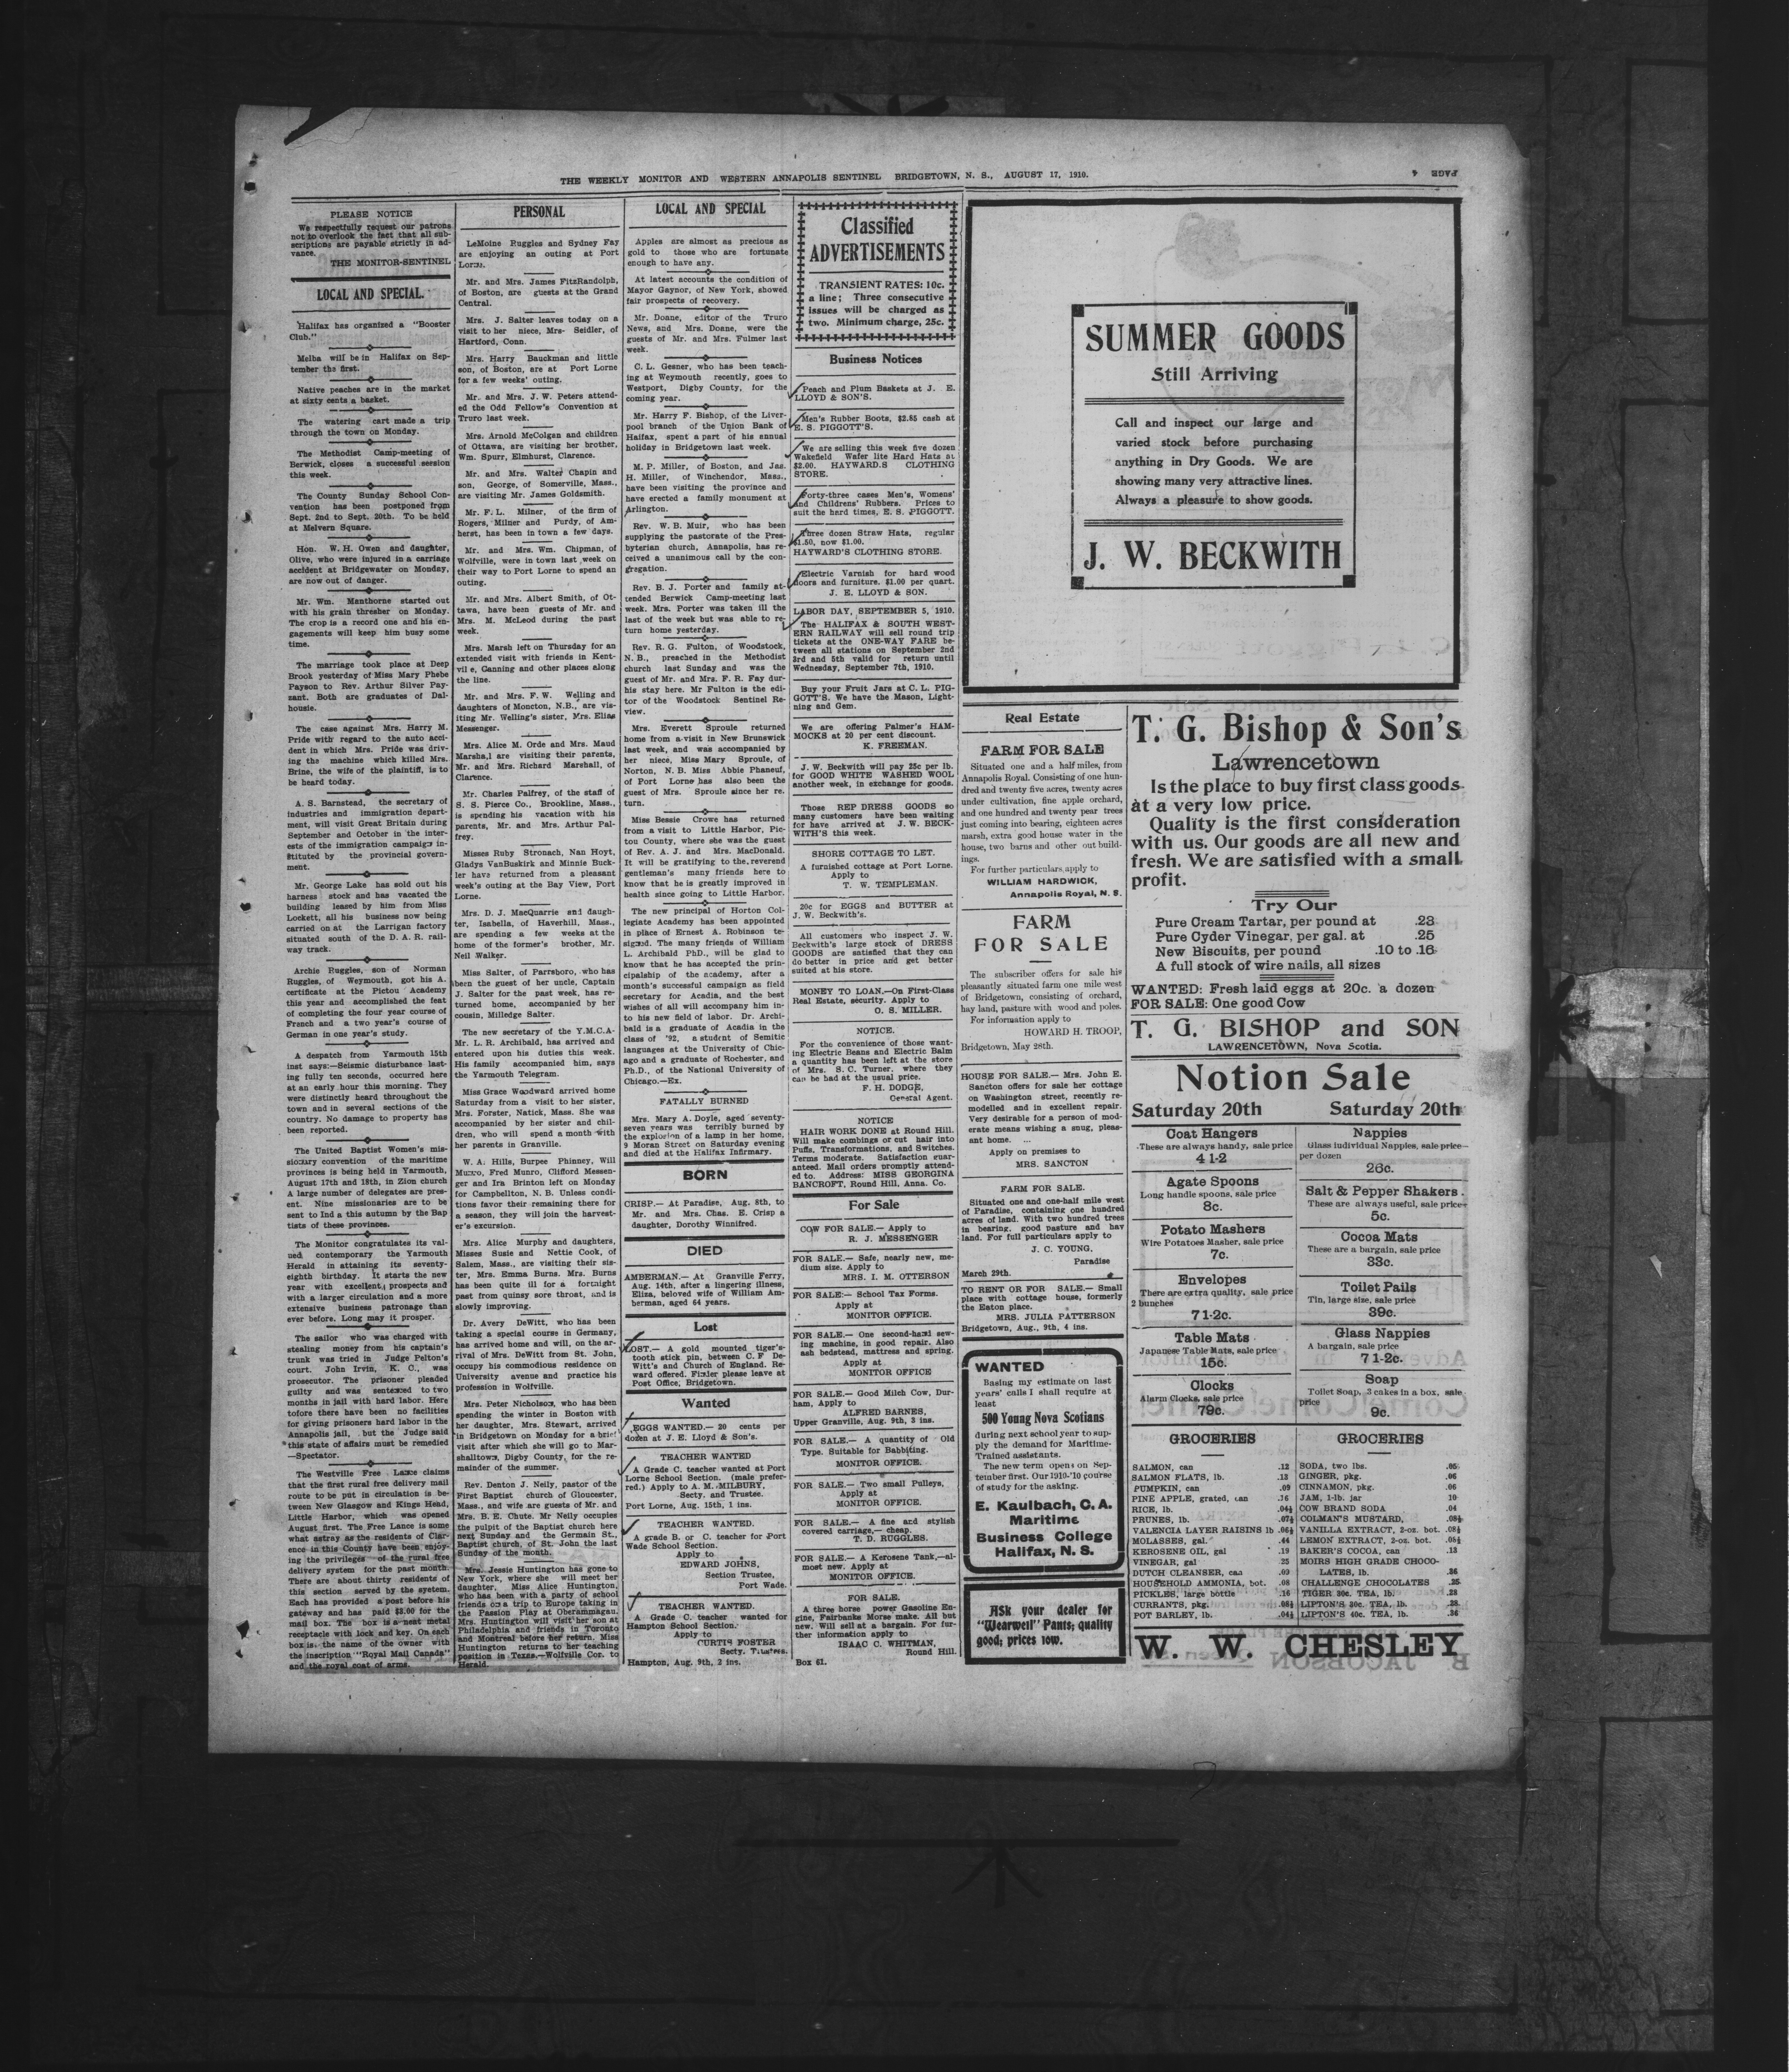 THE WEEKLY MONITOR AND WESTERN ANNAPOLIS SENTINEL BRIDGETOWN, N. S., AUGUST 17, 1910.
PAGE 4
PLEASE NOTICE
We respectfully request our patrons
not to overlook the fact that all sub-
scriptions are payable strictly in ad-
vance.
THE MONITOR-SENTINEL
LOCAL AND SPECIAL.
Halifax has organized a "Booster
Club."
Melba will be in Halifax on Sep-
tember the first.
Native peaches are in the market
at sixty cents a basket.
The watering cart made a trip
through the town on Monday.
The Methodist Camp-meeting of
Berwick, closes a successful session
this week.
The County Sunday School Con-
vention has been postponed from
Sept. 2nd to Sept. 20th. To be held
at Melvern Square.
Hon. W. H. Owen and daughter,
Olive, who were injured in a carriage
accident at Bridgewater on Monday,
are now out of danger.
Mr. Wm. Manthorne started out
with his grain thresher on Monday.
The crop is a record one and his en-
gagements will keep him busy some
time.
The marriage took place at Deep
Brook yesterday of Miss Mary Phebe
Payson to Rev. Arthur Silver Pay-
sant. Both are graduates of Dal-
housie.
The case against Mrs. Harry M.
Pride with regard to the auto acci-
dent in which Mrs. Pride was driv-
ing the machine which killed Mrs.
Brine, the wife of the plaintiff, is to
be heard today.
A. S. Barnstead, the secretary of
industries and immigration depart-
ment, will visit Great Britain during
September and October in the inter-
ests of the immigration campaign in-
stituted by the provincial govern-
ment.
Mr. George Lake has sold out his
harness stock and has vacated the
building leased by him from Miss
Lockett, all his business now being
carried on at the Larrigan factory
situated south of the D. A. R. rail-
way track.
Archie Ruggles, son of Norman
Ruggles, of Weymouth, got his A.
certificate at the Pictou Academy
this year and accomplished the feat
of completing the four year course of
French and a two year's course of
German in one year's study.
A despatch from Yarmouth 15th
inst says:—Seismic disturbance last-
ing fully ten seconds, occurred here
at an early hour this morning. They
were distinctly heard throughout the
town and in several sections of the
country. No damage to property has
been reported.
The United Baptist Women's mis-
sionary convention of the maritime
provinces is being held in Yarmouth,
August 17th and 18th, in Zion church
A large number of delegates are pres-
ent. Nine missionaries are to be
sent to Ind a this autumn by the Bap
tists of these provinces.
The Monitor congratulates its val-
ued contemporary the Yarmouth
Herald in attaining its seventy-
eighth birthday. It starts the new
year with excellent prospects and
with a larger circulation and a more
extensive business patronage than
ever before. Long may it prosper.
The sailor who was charged with
stealing money from his captain's
trunk was tried in Judge Pelton's
court. John Irvin, K. C., was
prosecutor. The prisoner pleaded
guilty and was sentenced to two
months in jail with hard labor. Here
tofore there have been no facilities
for giving prisoners hard labor in the
Annapolis jail, but the Judge said
this state of affairs must be remedied
—Spectator.
The Westville Free Lance claims
that the first rural free delivery mail
route to be put in circulation is be-
tween New Glasgow and Kings Head,
Little Harbor, which was opened
August first. The Free Lance is some
what astray as the residents of Clar-
ence in this County have been enjoy-
ing the privileges of the rural free
delivery system for the past month.
There are about thirty residents of
this section served by the system.
Each has provided a post before his
gateway and has paid $3.00 for the
mail box. The box is a neat metal
receptacle with lock and key. On each
box is the name of the owner with
the inscription "Royal Mail Canada"
and the royal coat of arms.
PERSONAL
LeMoine Ruggles and Sydney Fay
are enjoying an outing at Port
Lorne.
Mr. and Mrs. James FitzRandolph,
of Boston, are guests at the Grand
Central.
Mrs. J. Salter leaves today on a
visit to her niece, Mrs- Seidler, of
Hartford, Conn.
Mrs. Harry Bauckman and little
son, of Boston, are at Port Lorne
for a few weeks' outing.
Mr. and Mrs. J. W. Peters attend-
ed the Odd Fellow's Convention at
Truro last week.
Mrs. Arnold McColgan and children
of Ottawa, are visiting her brother,
Wm. Spurr, Elmhurst, Clarence.
Mr. and Mrs. Walter Chapin and
son, George, of Somerville, Mass.,
are visiting Mr. James Goldsmith.
Mr. F. L. Milner, of the firm of
Rogers, Milner and Purdy, of Am-
herst, has been in town a few days.
Mr. and Mrs. Wm. Chipman, of
Wolfville, were in town last week on
their way to Port Lorne to spend an
outing.
Mr. and Mrs. Albert Smith, of Ot-
tawa, have been guests of Mr. and
Mrs. M. McLeod during the past
week.
Mrs. Marsh left on Thursday for an
extended visit with friends in Kent-
vil e, Canning and other places along
the line.
Mr. and Mrs. F. W. Welling and
daughters of Moncton, N.B., are vis-
iting Mr. Welling's sister, Mrs. Elias
Messenger.
Mrs. Alice M. Orde and Mrs. Maud
Marshall are visiting their parents,
Mr. and Mrs. Richard Marshall, of
Clarence.
Mr. Charles Palfrey, of the staff of
S. S. Pierce Co., Brookline, Mass.,
is spending his vacation with his
parents, Mr. and Mrs. Arthur Pal-
frey.
Misses Ruby Stronach, Nan Hoyt,
Gladys VanBuskirk and Minnie Buck-
ler have returned from a pleasant
week's outing at the Bay View, Port
Lorne.
Mrs. D. J. MacQuarrie and daugh-
ter, Isabella, of Haverhill, Mass.,
are spending a few weeks at the
home of the former's brother, Mr.
Neil Walker.
Miss Salter, of Parrsboro, who has
been the guest of her uncle, Captain
J. Salter for the past week, has re-
turned home, accompanied by her
cousin, Milledge Salter.
The new secretary of the Y.M.C.A-
Mr. L. R. Archibald, has arrived and
entered upon his duties this week.
His family accompanied him, says
the Yarmouth Telegram.
Miss Grace Woodward arrived home
Saturday from a visit to her sister,
Mrs. Forster, Natick, Mass. She was
accompanied by her sister and chil-
dren, who will spend a month with
her parents in Granville.
W. A. Hills, Burpee Phinney, Will
Munro, Fred Munro, Clifford Messen-
ger and Ira Brinton left on Monday
for Campbellton, N. B. Unless condi-
tions favor their remaining there for
a season, they will join the harvest-
er's excursion.
Mrs. Alice Murphy and daughters,
Misses Susie and Nettie Cook, of
Salem, Mass., are visiting their sis-
ter, Mrs. Emma Burns. Mrs. Burns
has been quite ill for a fortnight
past from quinsy sore throat, and is
slowly improving.
Dr. Avery DeWitt, who has been
taking a special course in Germany,
has arrived home and will, on the ar-
rival of Mrs. DeWitt from St. John,
occupy his commodious residence on
University avenue and practice his
profession in Wolfville.
Mrs. Peter Nicholson, who has been
spending the winter in Boston with
her daughter, Mrs. Stewart, arrived
in Bridgetown on Monday for a brief
visit after which she will go to Mar-
shalltown, Digby County, for the re-
mainder of the summer.
Rev. Denton J. Neily, pastor of the
First Baptist church of Gloucester,
Mass., and wife are guests of Mr. and
Mrs. B. E. Chute. Mr Neily occupies
the pulpit of the Baptist church here
next Sunday and the Germain St.,
Baptist church, of St. John the last
Sunday of the month.
Mrs. Jessie Huntington has gone to
New York, where she will meet her
daughter, Miss Alice Huntington,
who has been with a party of school
friends on a trip to Europe taking in
the Passion Play at Oberammagau.
Mrs. Huntington will visit her son at
Philadelphia and friends in Toronto
and Montreal before her return. Miss
Huntington returns to her teaching
position in Texas.—Wolfville Cor. to
Herald.
LOCAL AND SPECIAL
Apples are almost as precious as
gold to those who are fortunate
enough to have any.
At latest accounts the condition of
Mayor Gaynor, of New York, showed
fair prospects of recovery.
Mr. Doane, editor of the Truro
News, and Mrs. Doane, were the
guests of Mr. and Mrs. Fulmer last
week.
C. L. Gesner, who has been teach-
ing at Weymouth recently, goes to
Westport, Digby County, for the
coming year.
Mr. Harry F. Bishop, of the Liver-
pool branch of the Union Bank of
Haifax, spent a part of his annual
holiday in Bridgetown last week.
M. P. Miller, of Boston, and Jas.
H. Miller, of Winchendor, Mass.,
have been visiting the province and
have erected a family monument at
Arlington.
Rev. W. B. Muir, who has been
supplying the pastorate of the Pres-
byterian church, Annapolis, has re-
ceived a unanimous call by the con-
gregation.
Rev. B. J. Porter and family at-
tended Berwick Camp-meeting last
week. Mrs. Porter was taken ill the
last of the week but was able to re-
turn home yesterday.
Rev. R. G. Fulton, of Woodstock,
N. B., preached in the Methodist
church last Sunday and was the
guest of Mr. and Mrs. F. R. Fay dur-
his stay here. Mr Fulton is the edi-
tor of the Woodstock Sentinel Re-
view.
Mrs. Everett Sproule returned
home from a visit in New Brunswick
last week, and was accompanied by
her niece, Miss Mary Sproule, of
Norton, N. B. Miss Abbie Phaneuf,
of Port Lorne has also been the
guest of Mrs. Sproule since her re.
turn.
Miss Bessie Crowe has returned
from a visit to Little Harbor, Pic-
tou County, where she was the guest
of Rev. A. J. and Mrs. MacDonald.
It will be gratifying to the reverend
gentleman's many friends here to
know that he is greatly improved in
health since going to Little Harbor.
The new principal of Horton Col-
legiate Academy has been appointed
in place of Ernest A. Robinson re-
signed. The many friends of William
L. Archibald PhD., will be glad to
know that he has accepted the prin-
cipalship of the academy, after a
month's successful campaign as field
secretary for Acadia, and the best
wishes of all will accompany him in-
to his new field of labor. Dr. Archi-
bald is a graduate of Acadia in the
class of '92, a student of Semitic
languages at the University of Chic-
ago and a graduate of Rochester, and
Ph.D., of the National University of
Chicago.—Ex.
FATALLY BURNED
Mrs. Mary A. Doyle, aged seventy-
seven years was terribly burned by
the explosion of a lamp in her home,
9 Moran Street on Saturday evening
and died at the Halifax Infirmary.
BORN
CRISP.— At Paradise, Aug. 8th, to
Mr. and Mrs. Chas. E. Crisp a
daughter, Dorothy Winnifred.
DIED
AMBERMAN.— At Granville Ferry,
Aug. 14th, after a lingering illness,
Eliza, beloved wife of William Am-
berman, aged 64 years.
Lost
LOST.— A gold mounted tiger's-
tooth stick pin, between C. F De-
Witt's and Church of England. Re-
ward offered. Finder please leave at
Post Office, Bridgetown.
Wanted
EGGS WANTED.— 20 cents per
dozen at J. E. Lloyd & Son's.
TEACHER WANTED
A Grade C. teacher wanted at Port
Lorne School Section. (male prefer-
red.) Apply to A. M. MILBURY,
Secty. and Trustee.
Port Lorne, Aug. 15th, 1 ins.
TEACHER WANTED.
A grade B. or C. teacher for Port
Wade School Section.
Apply to
EDWARD JOHNS,
Section Trustee,
Port Wade.
TEACHER WANTED.
A Grade C. teacher wanted for
Hampton School Section.
Apply to
CURTIS FOSTER
Secty. Trustees.
Hampton, Aug. 9th, 2 ins.
Classified
ADVERTISEMENTS
TRANSIENT RATES: 10c.
a line; Three consecutive
issues will be charged as
two. Minimum charge, 25c.
Business Notices
Peach and Plum Baskets at J. E.
LLOYD & SON'S.
Men's Rubber Boots, $2.85 cash at
E. S. PIGGOTT'S.
We are selling this week five dozen
Wakefield Wafer lite Hard Hats at
$2.00. HAYWARD.S CLOTHING
STORE.
Forty-three cases Men's, Womens'
and Childrens' Rubbers. Prices to
suit the hard times, E. S. PIGGOTT.
Three dozen Straw Hats, regular
$1.50, now $1.00.
HAYWARD'S CLOTHING STORE.
Electric Varnish for hard wood
doors and furniture. $1.00 per quart.
J. E. LLOYD & SON.
LABOR DAY, SEPTEMBER 5, 1910.
The HALIFAX & SOUTH WEST-
ERN RAILWAY will sell round trip
tickets at the ONE-WAY FARE be-
tween all stations on September 2nd
3rd and 5th valid for return until
Wednesday, September 7th, 1910.
Buy your Fruit Jars at C. L. PIG-
GOTT'S. We have the Mason, Light-
ning and Gem.
We are offering Palmer's HAM-
MOCKS at 20 per cent discount.
K. FREEMAN.
J. W. Beckwith will pay 25c per lb.
for GOOD WHITE WASHED WOOL
another week, in exchange for goods.
Those REP DRESS GOODS so
many customers have been waiting
for have arrived at J. W. BECK-
WITH'S this week.
SHORE COTTAGE TO LET.
A furnished cottage at Port Lorne.
Apply to
T. W. TEMPLEMAN.
20c for EGGS and BUTTER at
J. W. Beckwith's.
All customers who inspect J. W.
Beckwith's large stock of DRESS
GOODS are satisfied that they can
do better in price and get better
suited at his store.
MONEY TO LOAN.—On First-Class
Real Estate, security. Apply to
O. S. MILLER.
NOTICE.
For the convenience of those want-
ing Electric Beans and Electric Balm
a quantity has been left at the store
of Mrs. S. C. Turner, where they
can be had at the usual price.
F. H. DODGE,
General Agent.
NOTICE
HAIR WORK DONE at Round Hill.
Will make combings or cut hair into
Puffs, Transformations, and Switches.
Terms moderate. Satisfaction guar-
anteed. Mail orders promptly attend-
ed to. Address: MISS GEORGINA
BANCROFT, Round Hill, Anna. Co.
For Sale
COW FOR SALE.— Apply to
R. J. MESSENGER
FOR SALE.— Safe, nearly new, me-
dium size. Apply to
MRS. I. M. OTTERSON
FOR SALE:— School Tax Forms.
Apply at
MONITOR OFFICE.
FOR SALE.— One second-hand sew-
ing machine, in good repair. Also
ash bedstead, mattress and spring.
Apply at
MONITOR OFFICE
FOR SALE.— Good Milch Cow, Dur-
ham, Apply to
ALFRED BARNES,
Upper Granville, Aug. 9th, 3 ins.
FOR SALE.— A quantity of Old
Type. Suitable for Babbiting.
MONITOR OFFICE.
FOR SALE.— Two small Pulleys,
Apply at
MONITOR OFFICE.
FOR SALE.— A fine and stylish
covered carriage,— cheap.
T. D. RUGGLES.
FOR SALE.— A Kerosene Tank,—al-
most new. Apply at
MONITOR OFFICE.
FOR SALE.
A three horse power Gasoline En-
gine, Fairbanks Morse make. All but
new. Will sell at a bargain. For fur-
ther information apply to
ISAAC C. WHITMAN,
Round Hill.
Box 61.
SUMMER GOODS
Still Arriving
Call and inspect our large and
varied stock before purchasing
anything in Dry Goods. We are
showing many very attractive lines.
Always a pleasure to show goods.
J. W. BECKWITH
Real Estate
FARM FOR SALE
Situated one and a half miles, from
Annapolis Royal. Consisting of one hun-
dred and twenty five acres, twenty acres
under cultivation, fine apple orchard,
and one hundred and twenty pear trees
just coming into bearing, eighteen acres
marsh, extra good house water in the
house, two barns and other out build-
ings.
For further particulars apply to
WILLIAM HARDWICK,
Annapolis Royal, N. S.
FARM
FOR SALE
The subscriber offers for sale his
pleasantly situated farm one mile west
of Bridgetown, consisting of orchard,
hay land, pasture with wood and poles.
For information apply to
HOWARD H. TROOP,
Bridgetown, May 28th.
HOUSE FOR SALE.— Mrs. John E.
Sancton offers for sale her cottage
on Washington street, recently re-
modelled and in excellent repair.
Very desirable for a person of mod-
erate means wishing a snug, pleas-
ant home. ...
Apply on premises to
MRS. SANCTON
FARM FOR SALE.
Situated one and one-half mile west
of Paradise, containing one hundred
acres of land. With two hundred trees
in bearing, good pasture and hay
land. For full particulars apply to
J. C. YOUNG,
Paradise
March 29th.
TO RENT OR FOR SALE.— Small
place with cottage house, formerly
the Eaton place.
MRS. JULIA PATTERSON
Bridgetown, Aug., 9th, 4 ins.
WANTED
Basing my estimate on last
years' calls I shall require at
least
500 Young Nova Scotians
during next school year to sup-
ply the demand for Maritime-
Trained assistants.
The new term opens on Sep-
tember first. Our 1910-'10 course
of study for the asking.
E. Kaulbach, C. A.
Maritime
Business College
Halifax, N. S.
ASk your dealer for
"Wearwell" Pants; quality
good; prices low.
T. G. Bishop & Son's
Lawrencetown
Is the place to buy first class goods
at a very low price.
Quality is the first consideration
with us. Our goods are all new and
fresh. We are satisfied with a small
profit.
Try Our
Pure Cream Tartar, per pound at .23
Pure Cyder Vinegar, per gal. at .25
New Biscuits, per pound .10 to .16
A full stock of wire nails, all sizes
WANTED: Fresh laid eggs at 20c. a dozen
FOR SALE: One good Cow
T. G. BISHOP and SON
LAWRENCETOWN, Nova Scotia.
Notion Sale
Saturday 20th Saturday 20th
Coat Hangers
These are always handy, sale price
4 1-2
Agate Spoons
Long handle spoons, sale price
8c.
Potato Mashers
Wire Potatoes Masher, sale price
7c.
Envelopes
There are extra quality, sale price
2 bunches
7 1-2c.
Table Mats
Japanese Table Mats, sale price
15c.
Clocks
Alarm Clocks, sale price
79c.
Nappies
Glass individual Nappies, sale price
per dozen
26c.
Salt & Pepper Shakers.
These are always useful, sale price
5c.
Cocoa Mats
These are a bargain, sale price
33c.
Toilet Pails
Tin, large size, sale price
39c.
Glass Nappies
A bargain, sale price
7 1-2c.
Soap
Toilet Soap, 3 cakes in a box, sale
price
9c.
GROCERIES
SALMON, can .12
SALMON FLATS, lb. .13
PUMPKIN, can .09
PINE APPLE, grated, can .16
RICE, lb. .04½
PRUNES, lb. .07½
VALENCIA LAYER RAISINS lb .06½
MOLASSES, gal. .44
KEROSENE OIL, gal .19
VINEGAR, gal .25
DUTCH CLEANSER, can .09
HOUSEHOLD AMMONIA, bot. .08
PICKLES, large bottle .16
CURRANTS, pkg. .08½
POT BARLEY, lb. .04½
GROCERIES
SODA, two lbs. .05
GINGER, pkg. .06
CINNAMON, pkg. .06
JAM, 1-lb. jar 10
COW BRAND SODA .04
COLMAN'S MUSTARD, .08½
VANILLA EXTRACT, 2-oz. bot. .08½
LEMON EXTRACT, 2-oz. bot. .08½
BAKER'S COCOA, can .13
MOIRS HIGH GRADE CHOCO-
LATES, lb. .36
CHALLENGE CHOCOLATES .25
TIGER 30c. TEA, lb. .28
LIPTON'S 30c. TEA, lb. .28
LIPTON'S 40c. TEA, lb. .36
W. W. CHESLEY